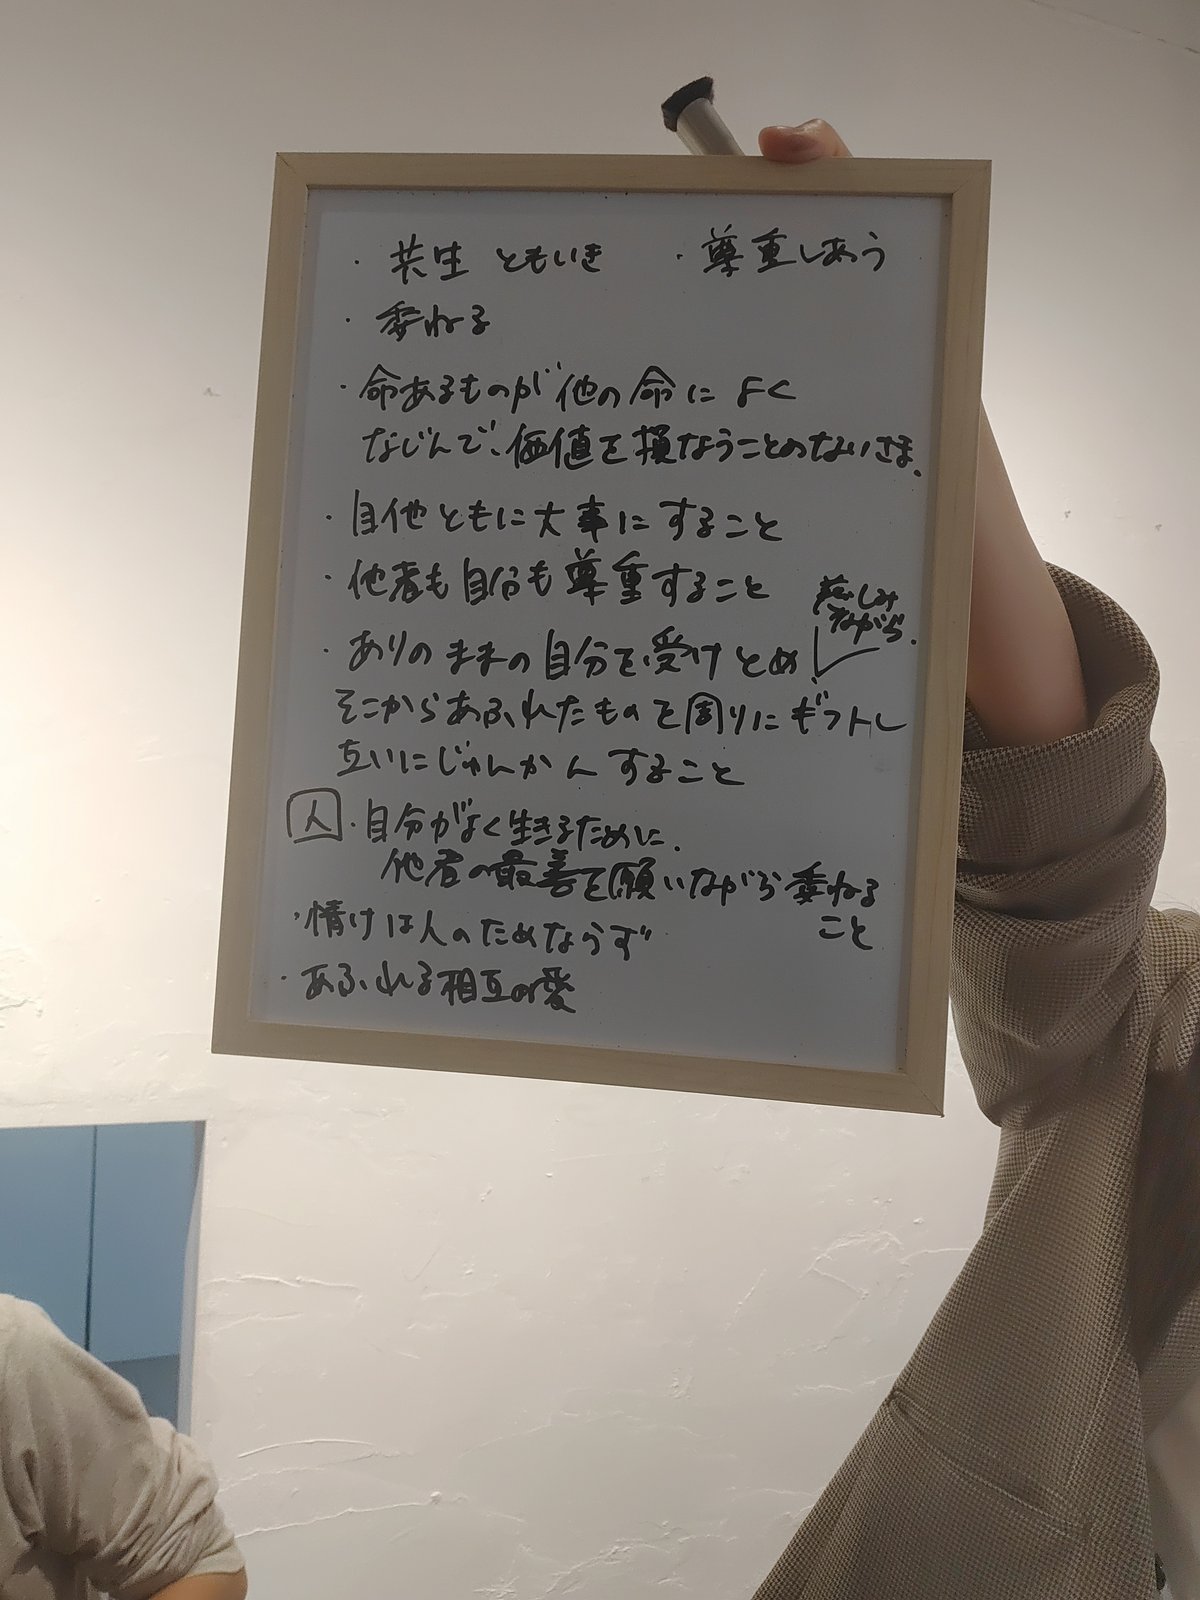 ・共生 ともいき ・尊重しあう
・委ねる
・命あるものが他の命によく
なじんで、価値を損なうことのないさま。
・自他ともに大事にすること
・他者も自分も尊重すること
慈しみ
ながら。
・ありのままの自分を受けとめ
そこからあふれたものを周りにギフトし
互いにじゅんかんすること
人・自分がよく生きるために、
他者の最善を願いながら委ねる
こと
・情けは人のためならず
・あふれる相互の愛